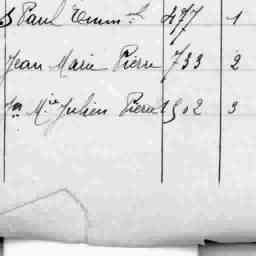 Paul Emm.el 477 1
Jean Marie Pierre 733 2
Mie Julien Pierre 1502 3